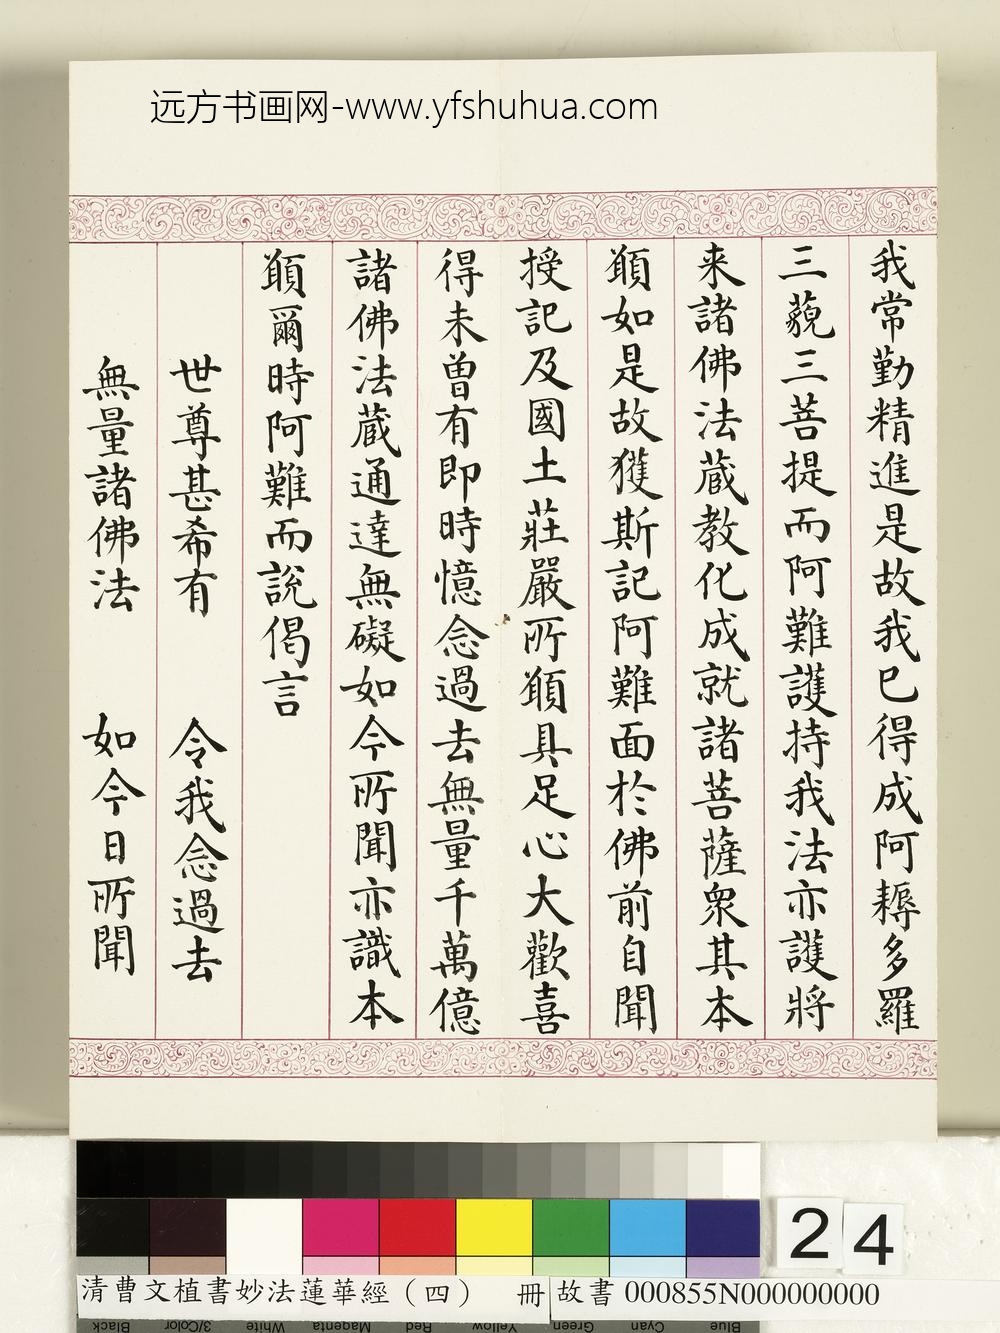 远方书画网-www.yfshuhua.com
我常勤精進是故我已得成阿耨多羅
三藐三菩提而阿難護持我法亦護將
来諸佛法蔵教化成就諸菩薩衆其本
願如是故獲斯記阿難面於佛前自聞
授記及國土莊嚴所願具足心大歡喜
得未曽有即時憶念過去無量千萬億
諸佛法蔵通達無礙如今所聞亦識本
願爾時阿難而說偈言
世尊甚希有 令我念過去
無量諸佛法 如今日所聞
24
清曹文植書妙法蓮華經（四） 冊
故書 000855N000000000
Black 3/Color White Magenta Red Yellow Green Cyan Blue